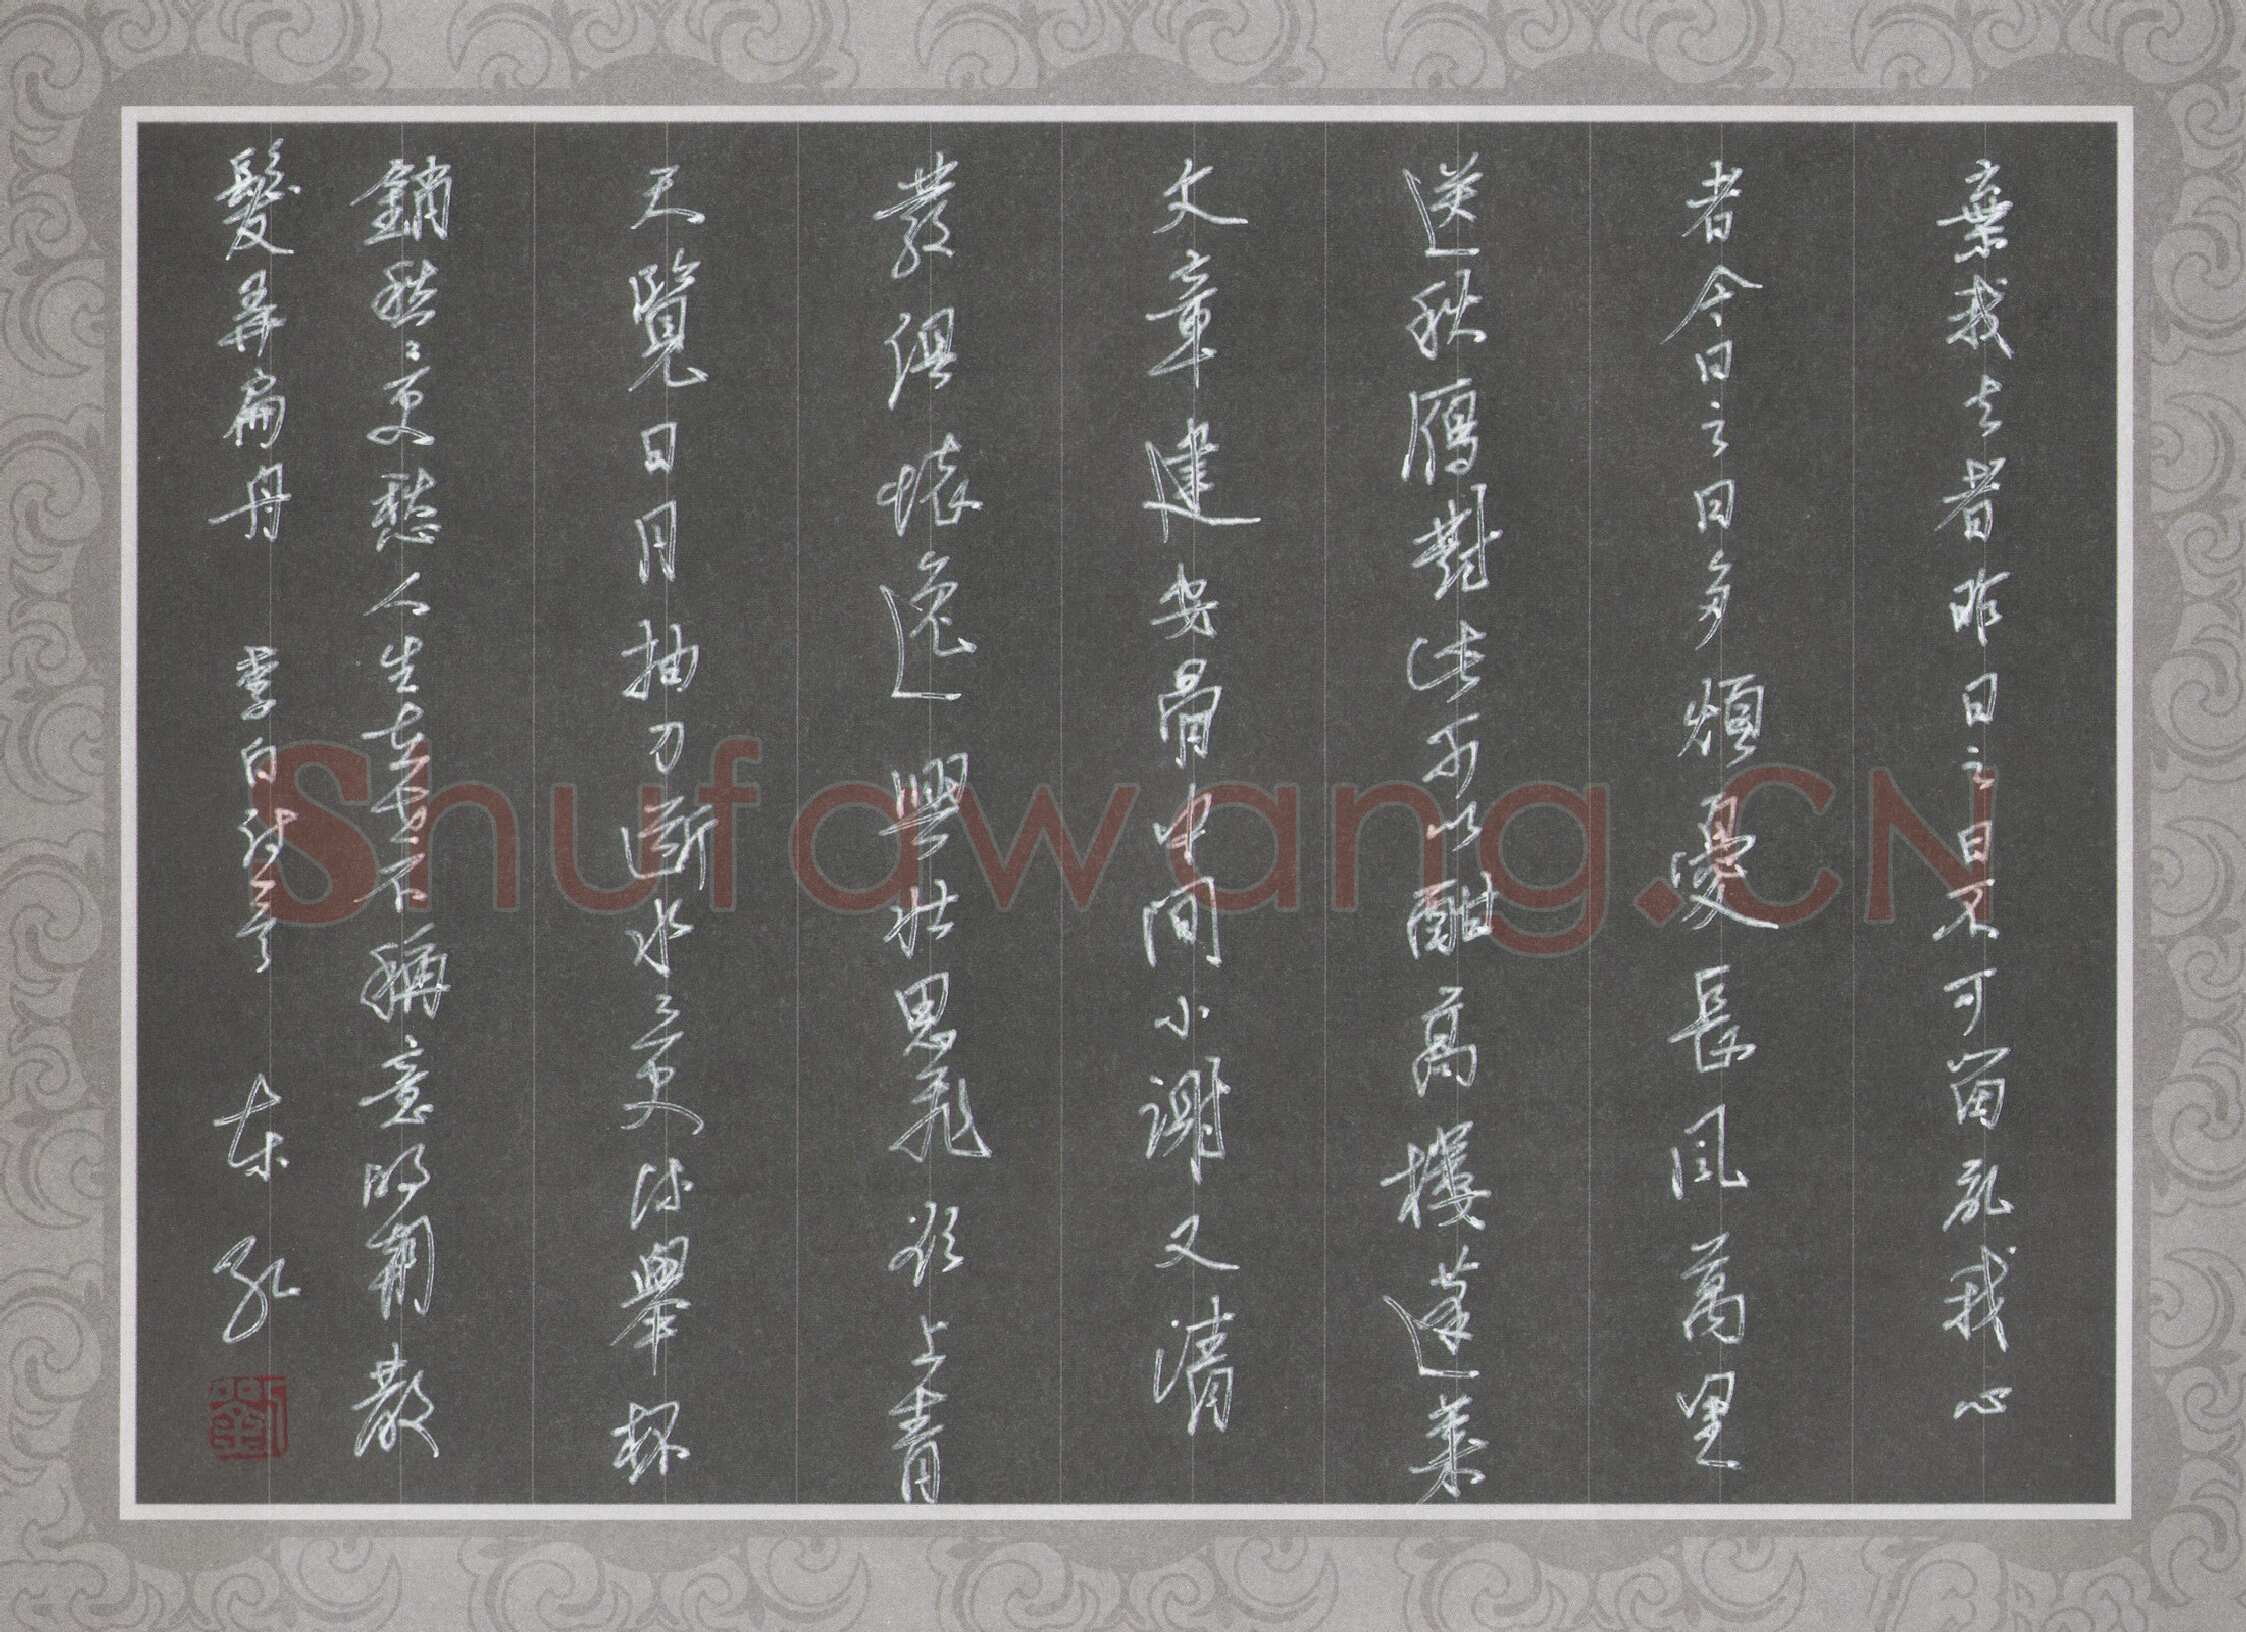 棄我去者昨日之日不可留亂我心
者今日之日多煩憂長風萬里
送秋雁對此可以酣高樓蓬萊
文章建安骨中間小謝又清
發俱懷逸興壯思飛欲上青
天覽日月抽刀斷水〻更流舉杯
銷愁〻更愁人生在世不稱意明朝散
髮弄扁舟 李白诗一首
Shufawang.CN